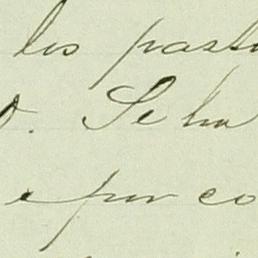 les past
. Se ha
e por co